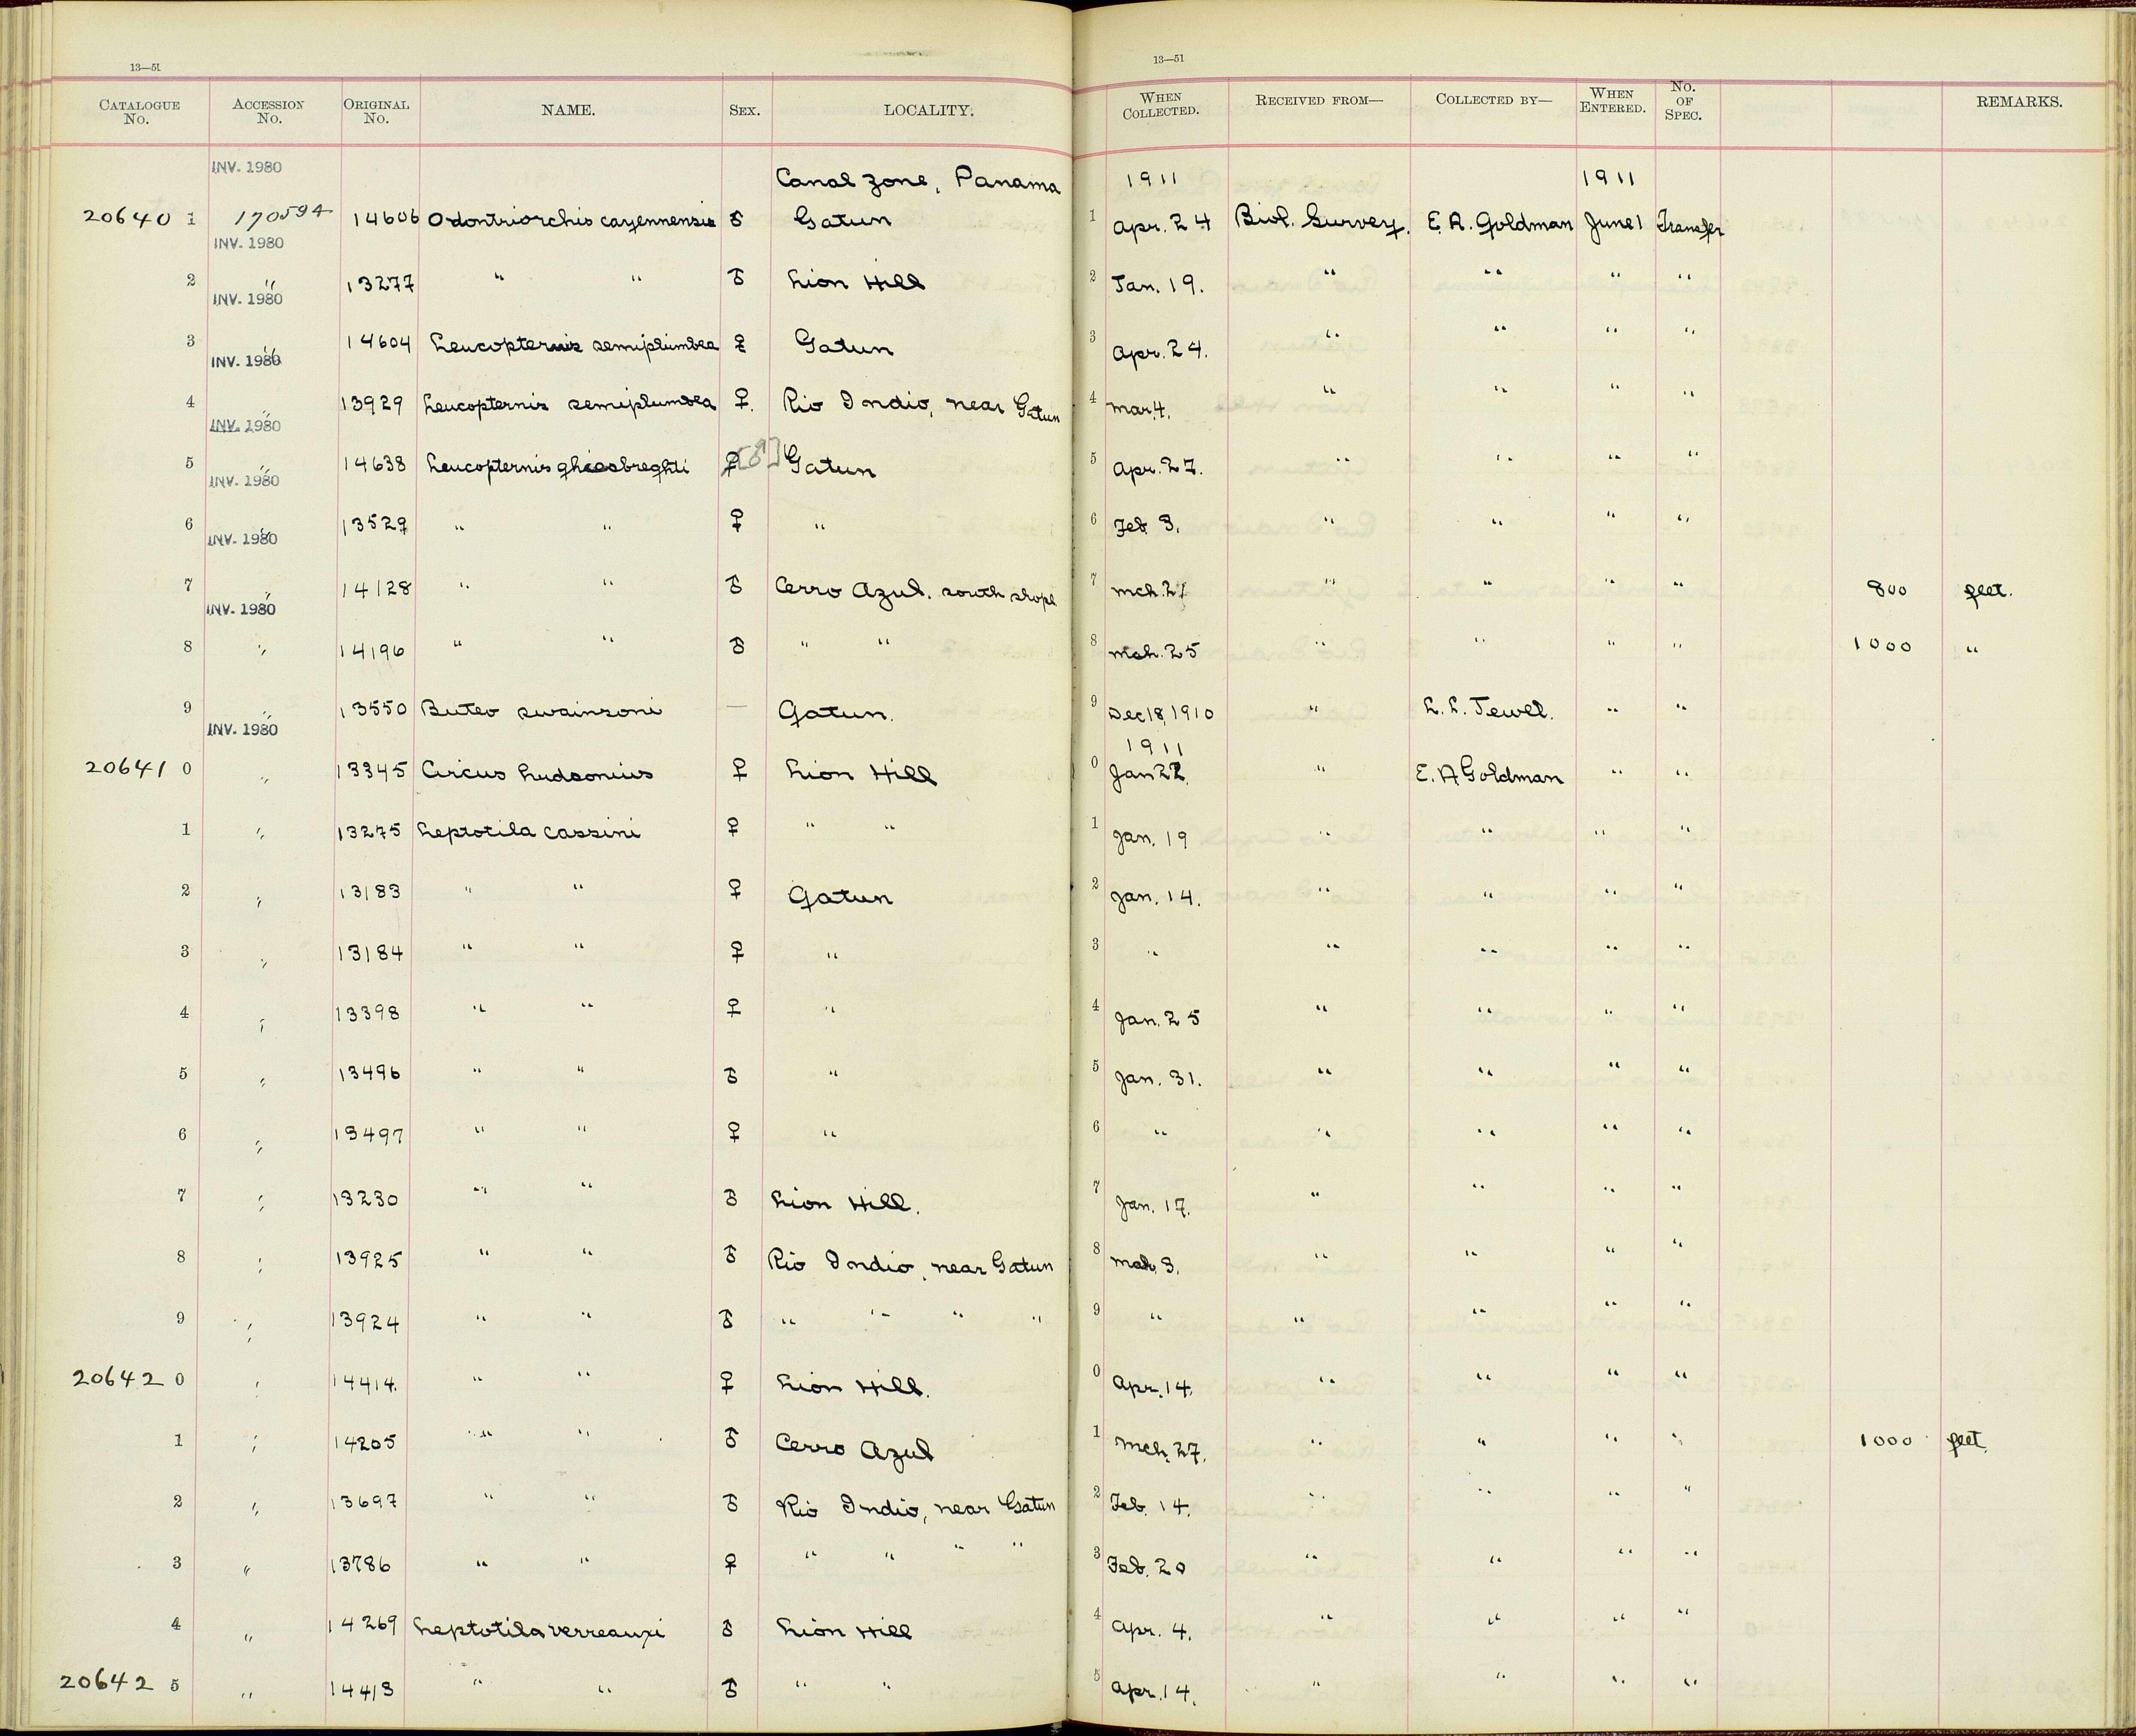 13—51
13—51
CATALOGUE No. ACCESSION No. ORIGINAL No. NAME. SEX. LOCALITY. WHEN COLLECTED. RECEIVED FROM— COLLECTED BY— WHEN ENTERED. No. OF SPEC. REMARKS.
INV. 1980 Canal Zone, Panama 1911 1911
20640 1 170594 14606 Odontriorchis cayennensis ♂ Gatun 1 Apr. 24 Biol. Survey. E. A. Goldman June 1 Transfer
INV. 1980
2 " 13277 " " ♂ Lion Hill 2 Jan. 19. " " " "
INV. 1980
3 " 14604 Leucopternis semiplumbea ♀ Gatun 3 Apr. 24. " " " "
INV. 1980
4 " 13929 Leucopternis semiplumbea ♀. Rio Indio, near Gatun 4 Mar. 4. " " " "
INV. 1980
5 " 14638 Leucopternis ghiesbreghti ♀ [♂] Gatun 5 Apr. 27. " " " "
INV. 1980
6 " 13529 " " ♀ " 6 Feb 3. " " " "
INV. 1980
7 " 14128 " " ♂ Cerro Azul. south slope 7 Mch. 27 " " " " 800 feet.
INV. 1980
8 " 14196 " " ♂ " " 8 Mch. 25 " " " " 1000 "
9 " 13550 Buteo swainsoni — Gatun. 9 Dec 18, 1910 " L. L. Jewel. " "
INV. 1980 1911
20641 0 " 13345 Circus hudsonius ♀ Lion Hill 0 Jan 22 " E. A Goldman " "
1 " 13275 Leptotila cassini ♀ " " 1 Jan. 19 " " " "
2 " 13183 " " ♀ Gatun 2 Jan. 14. " " " "
3 " 13184 " " ♀ " 3 " " " " "
4 " 13398 " " ♀ " 4 Jan. 25 " " " "
5 " 13496 " " ♂ " 5 Jan. 31. " " " "
6 " 13497 " " ♀ " 6 " " " " "
7 " 13230 " " ♂ Lion Hill. 7 Jan. 17. " " " "
8 " 13925 " " ♂ Rio Indio, near Gatun 8 Mch. 3. " " " "
9 " 13924 " " ♂ " " " " 9 " " " " "
20642 0 " 14414. " " ♀ Lion Hill. 0 Apr. 14. " " " "
1 " 14205 " " ♂ Cerro Azul 1 Mch. 27. " " " " 1000 feet.
2 " 13697 " " ♂ Rio Indio, near Gatun 2 Feb. 14. " " " "
3 " 13786 " " ♀ " " " " 3 Feb. 20 " " " "
4 " 14269 Leptotila verreauxi ♂ Lion Hill 4 Apr. 4. " " " "
20642 5 " 14413 " " ♂ " " 5 Apr. 14. " " " "